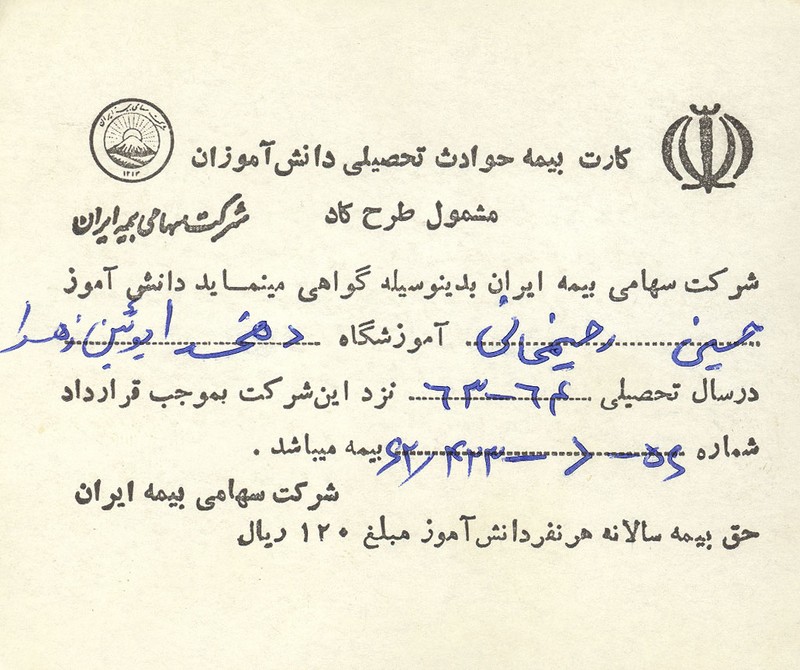 شرکت سهامی بیمه ایران
۱۳۱۴
کارت بیمه حوادث تحصیلی دانش‌آموزان
مشمول طرح کاد
شرکت سهامی بیمه ایران
شرکت سهامی بیمه ایران بدینوسیله گواهی مینماید دانش آموز
حسین رحیمخانی آموزشگاه دهخدا بوئین زهرا
درسال تحصیلی ۶۴-۶۳ نزد این‌شرکت بموجب قرارداد
شماره بیمه میباشد .
شرکت سهامی بیمه ایران
حق بیمه سالانه هر نفر دانش‌آموز مبلغ ۱۲۰ ریال